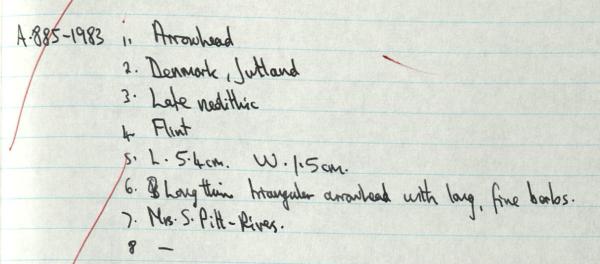 A.885-1983 1. Arrowhead
2. Denmark, Jutland
3. Late neolithic
4. Flint
5. L. 5.4cm. W. 1.5cm.
6. Long thin triangular arrowhead with long, fine barbs.
7. Mrs. S. Pitt-Rivers.
8 —